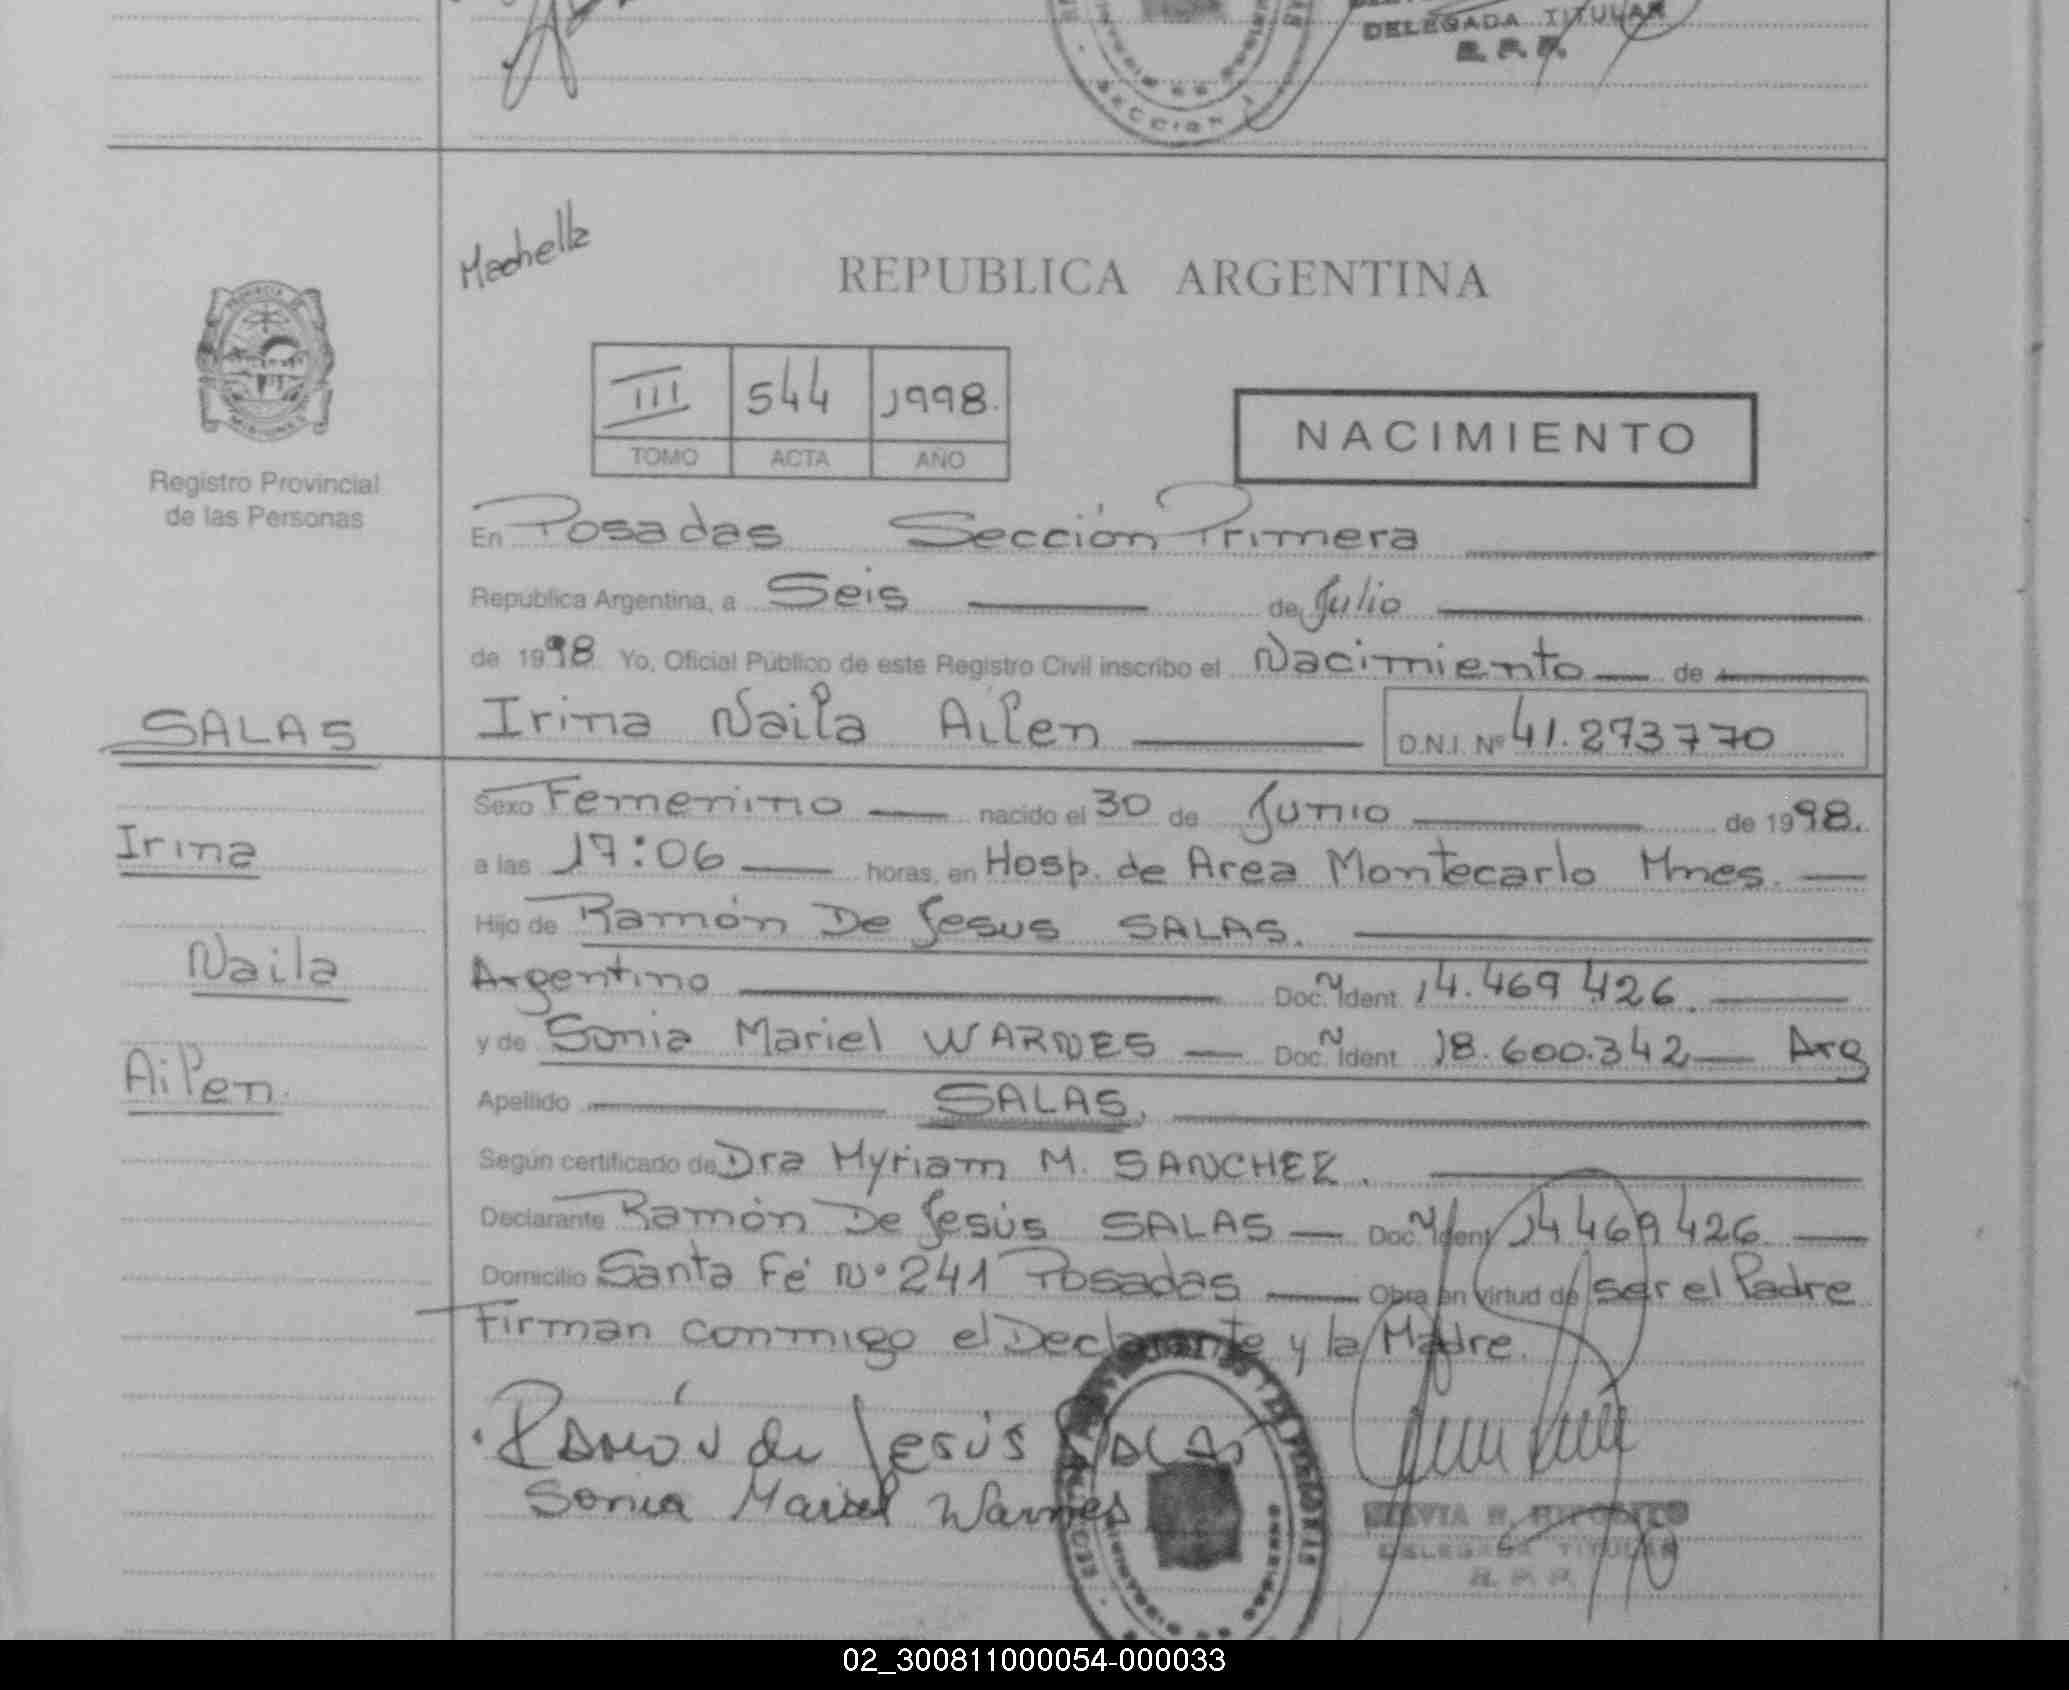 DELEGADA TITULAR
R. P. P.
SECCION 1
Machella
REPUBLICA ARGENTINA
III 544 1998.
TOMO ACTA AÑO
NACIMIENTO
Registro Provincial
de las Personas
En Posadas Sección Primera
Republica Argentina, a Seis de Julio
de 1998 Yo, Oficial Público de este Registro Civil inscribo el Nacimiento de
SALAS
Irina Naila Ailen D.N.I. Nº 41.273770
Sexo Femenino nacido el 30 de Junio de 1998.
Irina
a las 17:06 horas, en Hosp. de Area Montecarlo Mnes.
Hijo de Ramón De Jesus SALAS.
Naila
Argentino Doc. N Ident 14.469 426.
y de Sonia Mariel WARNES Doc. N Ident 18.600.342 Arg
Ailen.
Apellido SALAS.
Según certificado de Dra Myriam M. SANCHEZ.
Declarante Ramón De Jesús SALAS Doc. N Ident 14 469 426
Domicilio Santa Fé Nº 241 Posadas Obra en virtud de ser el Padre
Firman conmigo el Declarante y la Madre.
Ramón de Jesús SALAS
Sonia Mariel Warnes
DELEGADA TITULAR
R. P. P.
02_300811000054-000033